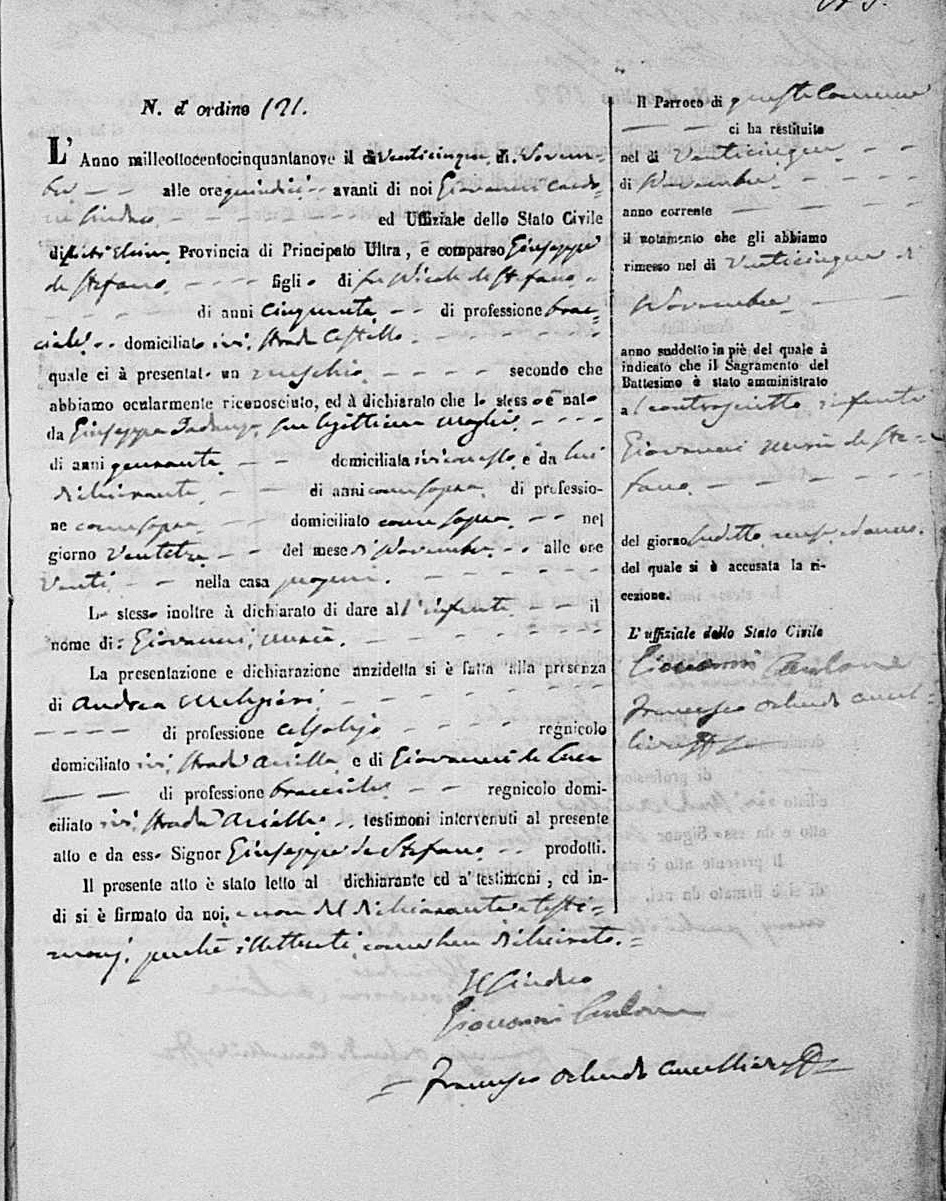 N. d' ordine 121.
L' Anno millottocentocinquantanove il dì venticinque di Novem-
bre - - alle ore quindici avanti di noi Giovanni
Sindaco - - - - ed Uffiziale dello Stato Civile
di Provincia di Principato Ultra, è comparso Giuseppe
de Stefano - - - - figlio di fu Nicola de Stefano
- - - - di anni cinquanta - - di professione brac-
ciale - - domiciliato ivi, strada Castello - - - -
quale ci à presentato un maschio - - - - secondo che
abbiamo ocularmente riconosciuto, ed à dichiarato che lo stesso è nato
da Giuseppa sua legittima moglie - - - -
di anni quaranta - - domiciliata ivi con esso e da lui
dichiarante - - di anni come sopra di professio-
ne come sopra - - domiciliato come sopra - - nel
giorno ventitre - - del mese di Novembre - - alle ore
venti - - nella casa propria. - - - -
Lo stesso inoltre à dichiarato di dare all'infante - - il
nome di: Giovanni, maria. - - - -
La presentazione e dichiarazione anzidetta si è fatta alla presenza
di Andrea - - - -
- - - - di professione calzolajo - - - - regnicolo
domiciliato ivi, strada Ariella e di Giovanni de Luca
- - di professione bracciale - - regnicolo domi-
ciliato ivi, strada Ariella - - testimoni intervenuti al presente
atto e da esso Signor Giuseppe de Stefano - - prodotti.
Il presente atto è stato letto al dichiarante ed a' testimoni, ed in-
di si è firmato da noi, e non dal dichiarante e testi-
monj, perché illetterati come han dichiarato. =
Il Sindaco
Giovanni Cardone
= Francesco Orlando Cancelliere =
Il Parroco di questo Comune
- - - ci ha restituito
nel dì venticinque - - -
di Novembre - - -
anno corrente - - -
il notamento che gli abbiamo
rimesso nel dì venticinque di
Novembre - - -
anno suddetto in piè del quale à
indicato che il Sagramento del
Battesimo è stato amministrato
al controscritto infante
Giovanni maria de Ste-
fano. - - - -
del giorno suddetto mese ed anno.
del quale si è accusata la ri-
cezione.
L' uffiziale dello Stato Civile
Giovanni Cardone
Francesco Orlando Cancel-
liere